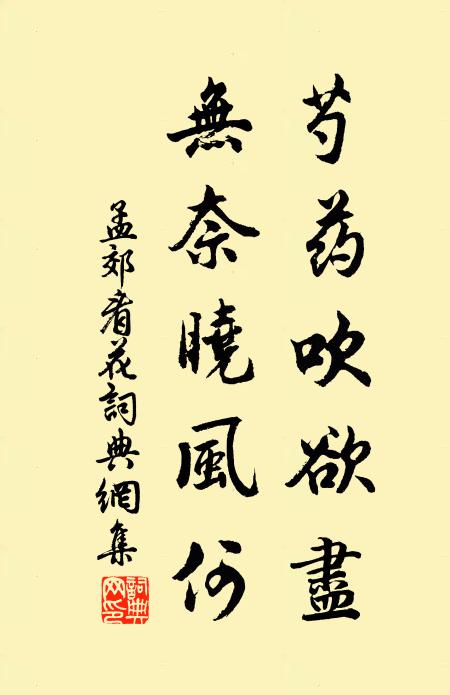 芍药吹欲盡
無奈曉風何
孟郊看花詞典網集
詞典網印